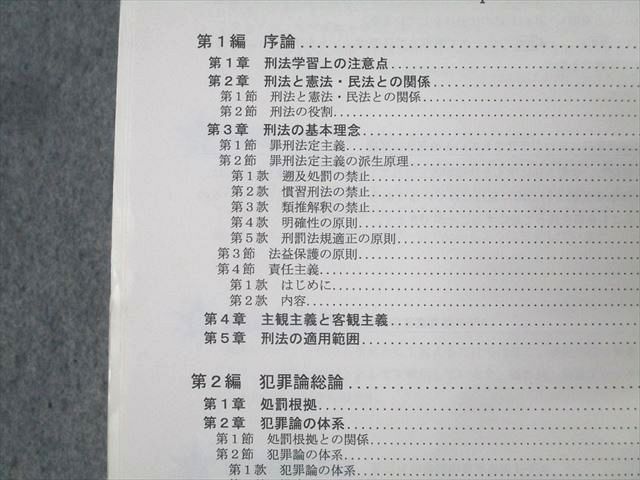 第1編　序論
第1章　刑法学習上の注意点
第2章　刑法と憲法・民法との関係
第1節　刑法と憲法・民法との関係
第2節　刑法の役割
第3章　刑法の基本理念
第1節　罪刑法定主義
第2節　罪刑法定主義の派生原理
第1款　遡及処罰の禁止
第2款　慣習刑法の禁止
第3款　類推解釈の禁止
第4款　明確性の原則
第5款　刑罰法規適正の原則
第3節　法益保護の原則
第4節　責任主義
第1款　はじめに
第2款　内容
第4章　主観主義と客観主義
第5章　刑法の適用範囲
第2編　犯罪論総論
第1章　処罰根拠
第2章　犯罪論の体系
第1節　処罰根拠との関係
第2節　犯罪論の体系
第1款　犯罪論の体系